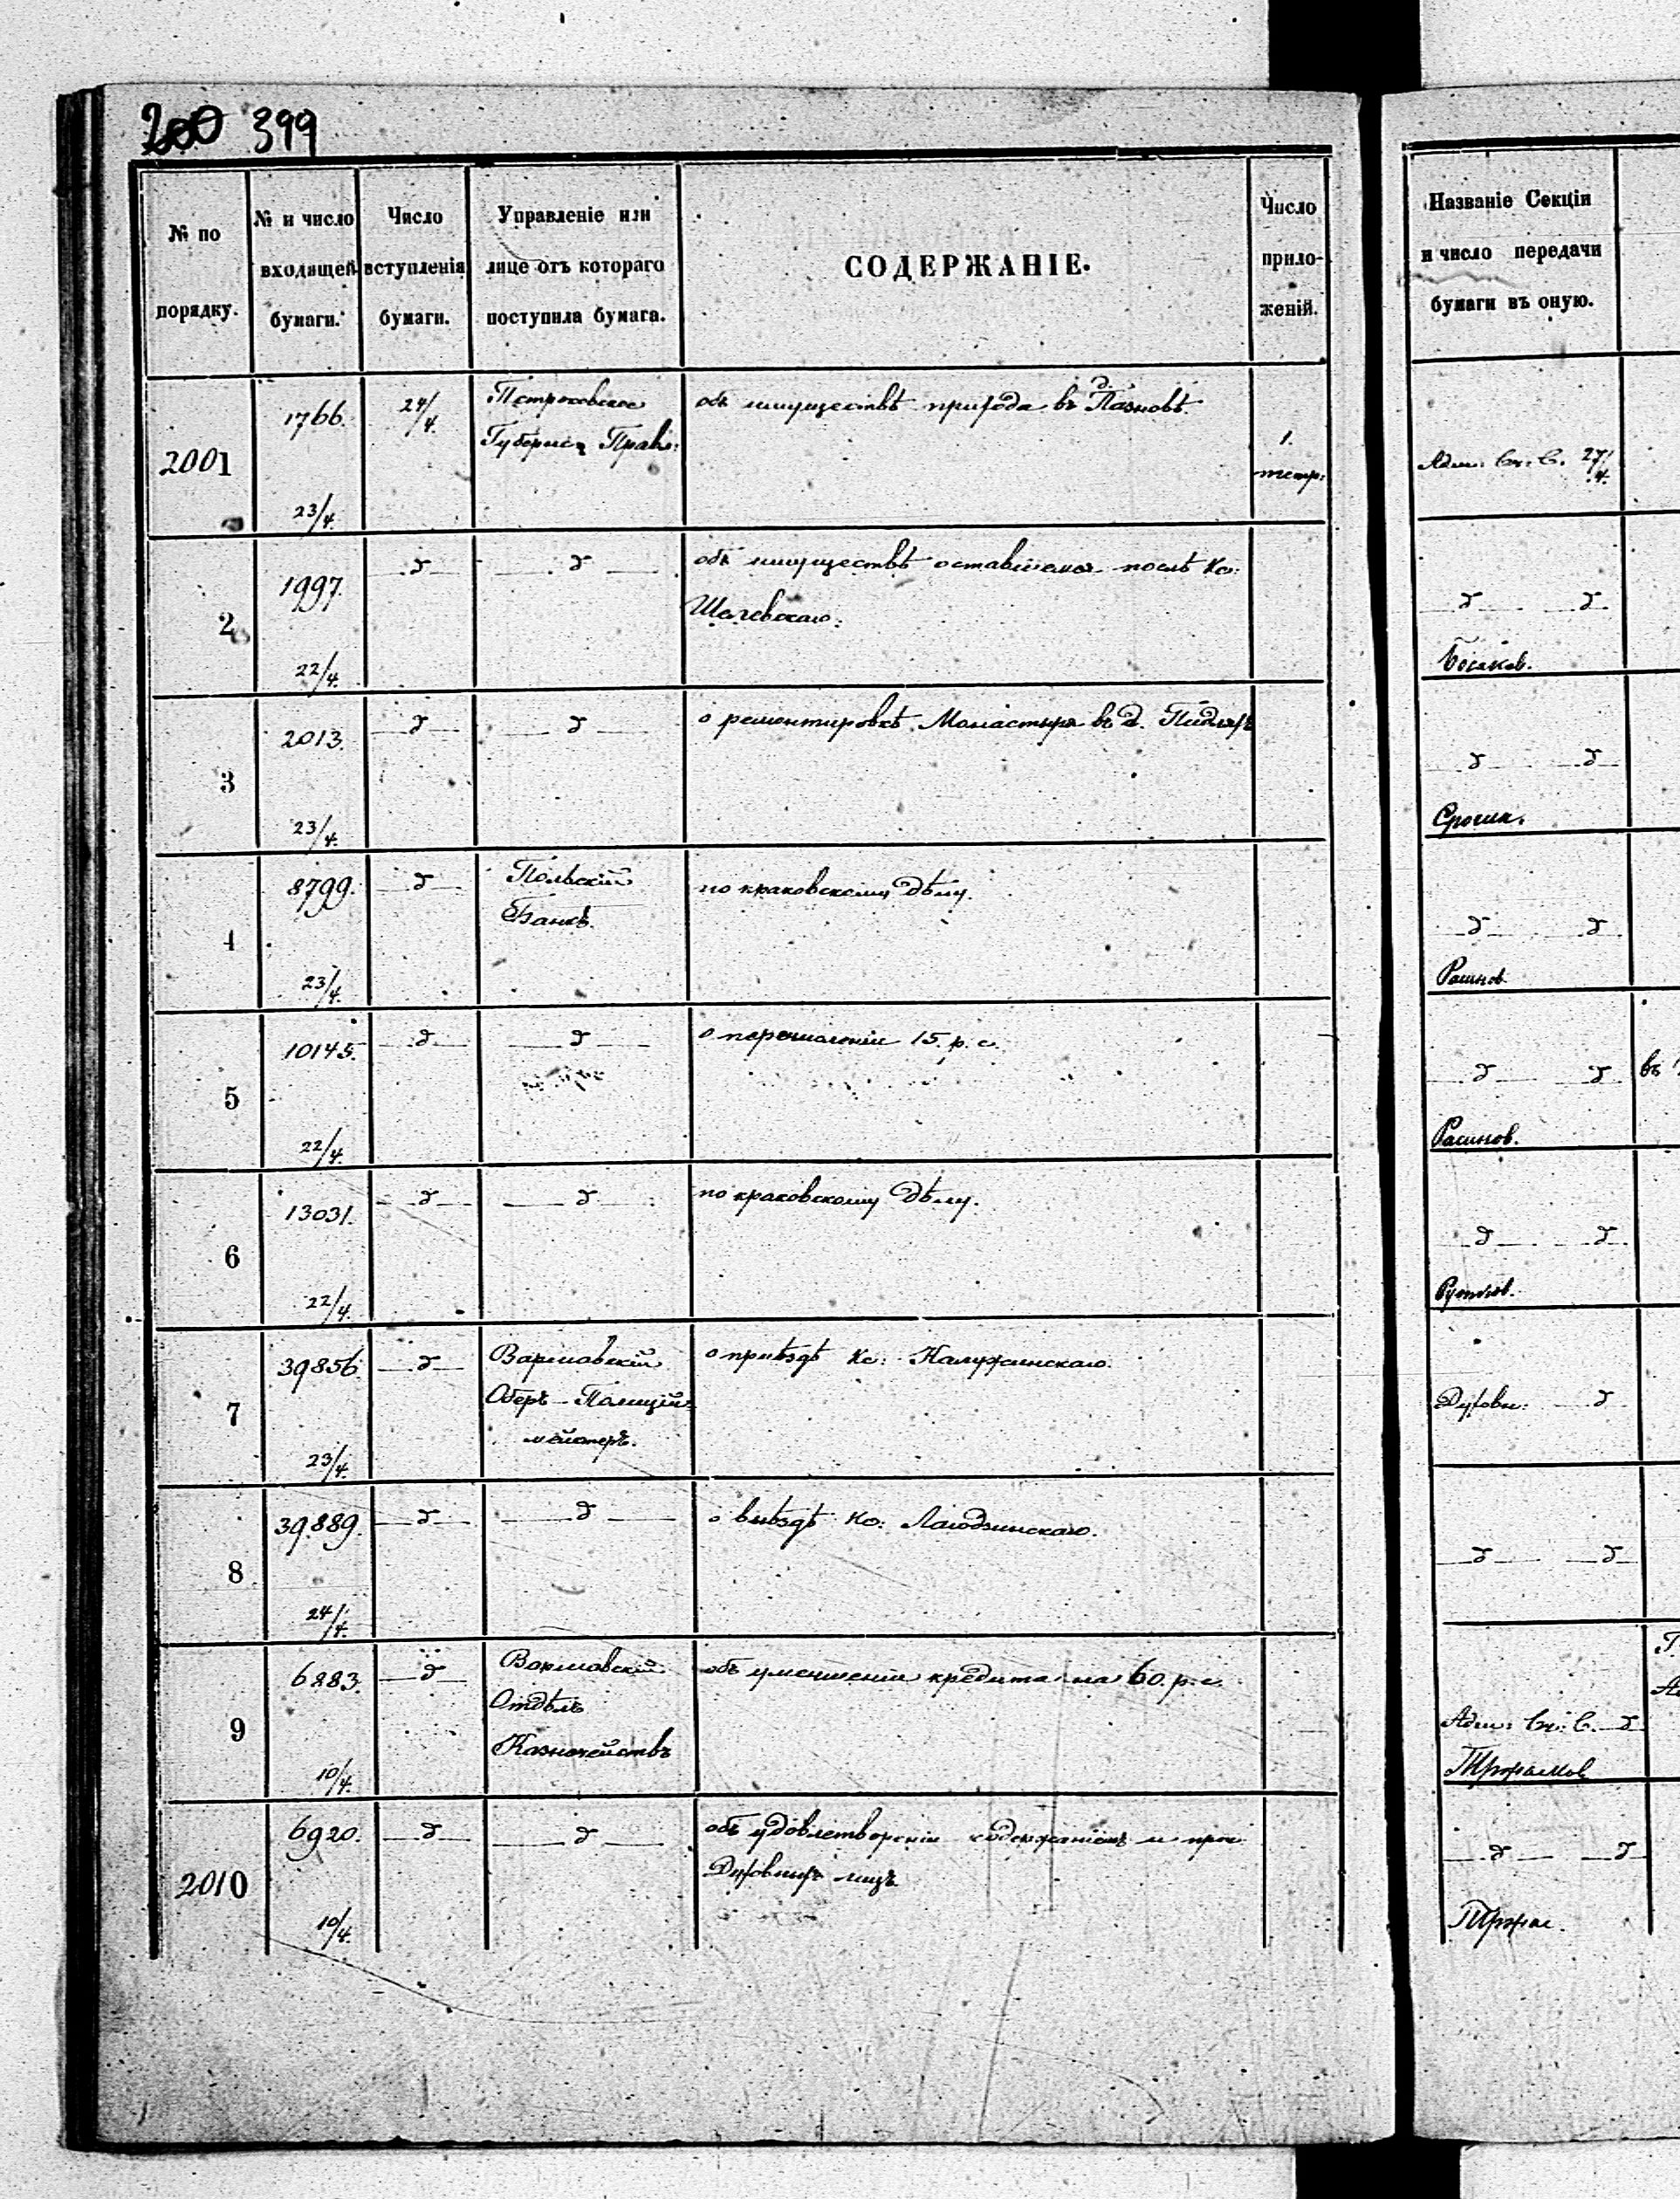 200 399
№ по
порядку.
№ и число
входящей
бумаги.
Число
вступленія
бумаги.
Управленіе или
лице отъ котораго
поступила бумага.
СОДЕРЖАНІЕ.
Число
прило-
женій.
Названіе Секціи
и число передачи
бумаги въ оную.
2001
1766.
23/4.
24/4.
Петроковское
Губернс. Правл:
объ имуществѣ прихода въ д. Пазновѣ.
1.
тетр:
Адм: Ск. С. 27/4.
2
1997.
22/4.
д
д
объ имуществѣ оставшемся послѣ Кс:
д д
3
2013.
23/4.
д
д
о ремонтировкѣ Монастыря въ д.
д д
4
8799.
23/4.
д
Польскій
Банкъ.
по краковскому дѣлу.
д д
5
10145.
22/4.
д
д
о перечисленіи 15. р. с.
д д
въ
6
13031.
22/4.
д
д
по краковскому дѣлу.
д д
7
39856.
23/4.
д
Варшавскій
Оберъ-Полицій-
мейстеръ.
о пріѣздѣ Кс: Калужинскаго.
Духовн: д
8
39.889.
24/4.
д
д
о выѣздѣ Кс: Лагодзинскаго.
д д
9
6883.
10/4.
д
Варшавскій
Отдѣлъ
Казначействъ
объ уменшеніи кредита на 60. р. с.
Адм: Ск: С. д
2010
6920.
10/4.
д
д
объ удовлетвореніи содержаніемъ и проч:
Духовныхъ лицъ
д д